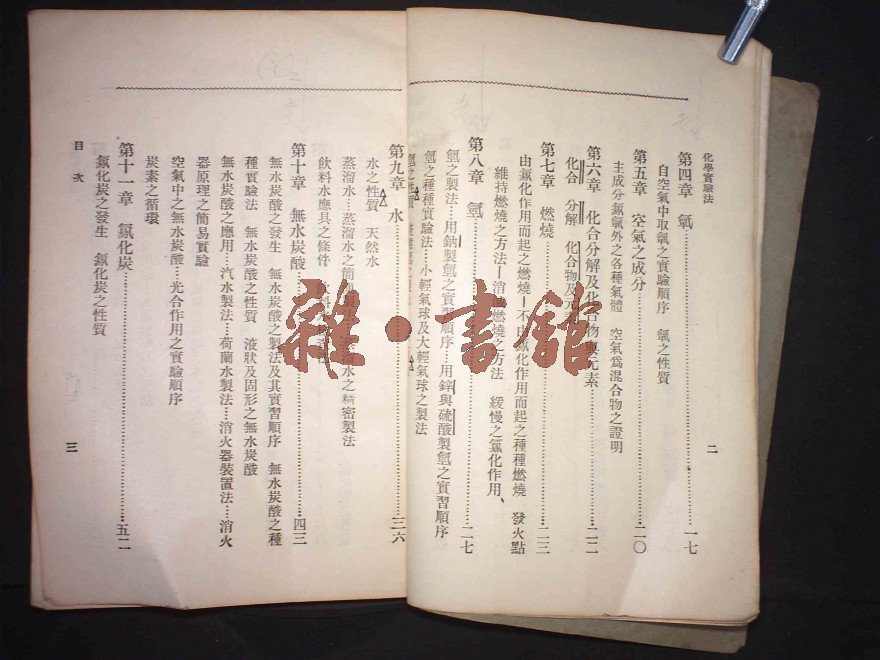 化學實驗法
第四章 氧……一七
自空氣中取氧之實驗順序 氧之性質
第五章 空氣之成分……二〇
主成分氮氧外之各種氣體 空氣爲混合物之證明
第六章 化合分解及化合物與元素……二二
化合 分解 化合物及元素
第七章 燃燒……二三
由氧化作用而起之燃燒—不由氧化作用而起之種種燃燒 發火點
維持燃燒之方法—消滅燃燒之方法 緩慢之氧化作用、
第八章 氫……二七
氫之製法…用鈉製氫之實習順序…用鋅與硫酸製氫之實習順序
氫之種種實驗法…小輕氣球及大輕氣球之製法
氫之性質
二
第九章 水……三六
水之性質 天然水
蒸溜水…蒸溜水之簡易製法…蒸溜水之精密製法
飲料水應具之條件 飲料水
第十章 無水炭酸……四三
無水炭酸之發生 無水炭酸之製法及其實習順序 無水炭酸之種
種實驗法 無水炭酸之性質 液狀及固形之無水炭酸
無水炭酸之應用…汽水製法…荷蘭水製法…消火器裝置法…消火
器原理之簡易實驗
空氣中之無水炭酸…光合作用之實驗順序
炭素之循環
第十一章 氧化炭……五二
氧化炭之發生 氧化炭之性質
目次
三
雜·書館